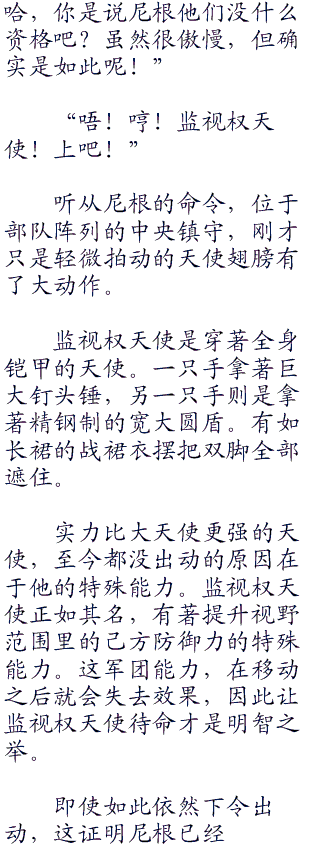 哈，你是说尼根他们没什么
资格吧？虽然很傲慢，但确
实是如此呢！”
“唔！哼！监视权天
使！上吧！”
听从尼根的命令，位于
部队阵列的中央镇守，刚才
只是轻微拍动的天使翅膀有
了大动作。
监视权天使是穿著全身
铠甲的天使。一只手拿著巨
大钉头锤，另一只手则是拿
著精钢制的宽大圆盾。有如
长裙的战裙衣摆把双脚全部
遮住。
实力比大天使更强的天
使，至今都没出动的原因在
于他的特殊能力。监视权天
使正如其名，有著提升视野
范围里的己方防御力的特殊
能力。这军团能力，在移动
之后就会失去效果，因此让
监视权天使待命才是明智之
举。
即使如此依然下令出
动，这证明尼根已经